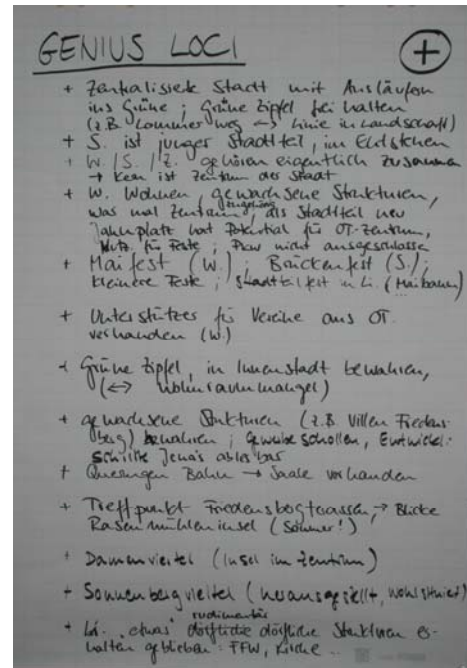 GENIUS LOCI +
+ Zentralisierte Stadt mit Ausläufern
ins Grüne ; Grüne Zipfel frei halten
(z.B. Lommerweg <-> Linie in Landschaft)
+ S. ist junger Stadtteil, im Entstehen
+ W. / S. / Z. gehören eigentlich zusammen
→ Kern ist Zentrum der Stadt
+ W. Wohnen, gewachsene Strukturen,
was mal Zentrum, als Stadtteil neu
Jahnplatz hat Potential für OT-Zentrum,
Nutz. für Feste ; nicht ausgeschlossen
+ Maifest (W.) ; Brückenfest (S.) ;
kleinere Feste ; Stadtteilfest in Li. (Maibaum)
+ Unterstützer für Vereine aus OT.
vorhanden (W.)
+ Grüne Zipfel, in Innenstadt bewahren,
(<-> Wohnraummangel)
+ gewachsene Strukturen (z.B. Villen Friedens-
berg) bewahren ; Entwickl.-
Jena's ablesbar
+ Querungen Bahn → Saale vorhanden
+ Treffpunkt Friedensbergterrassen, → Blicke
Rasenmühleninsel (Sommer!)
+ Damenviertel (Insel im Zentrum)
+ Sonnenbergviertel (herausgestellt, wohlsituiert)
rudimentär
+ Li. "etwas" dörfliche dörfliche Strukturen er-
halten geblieben : FFW, Kirche ...